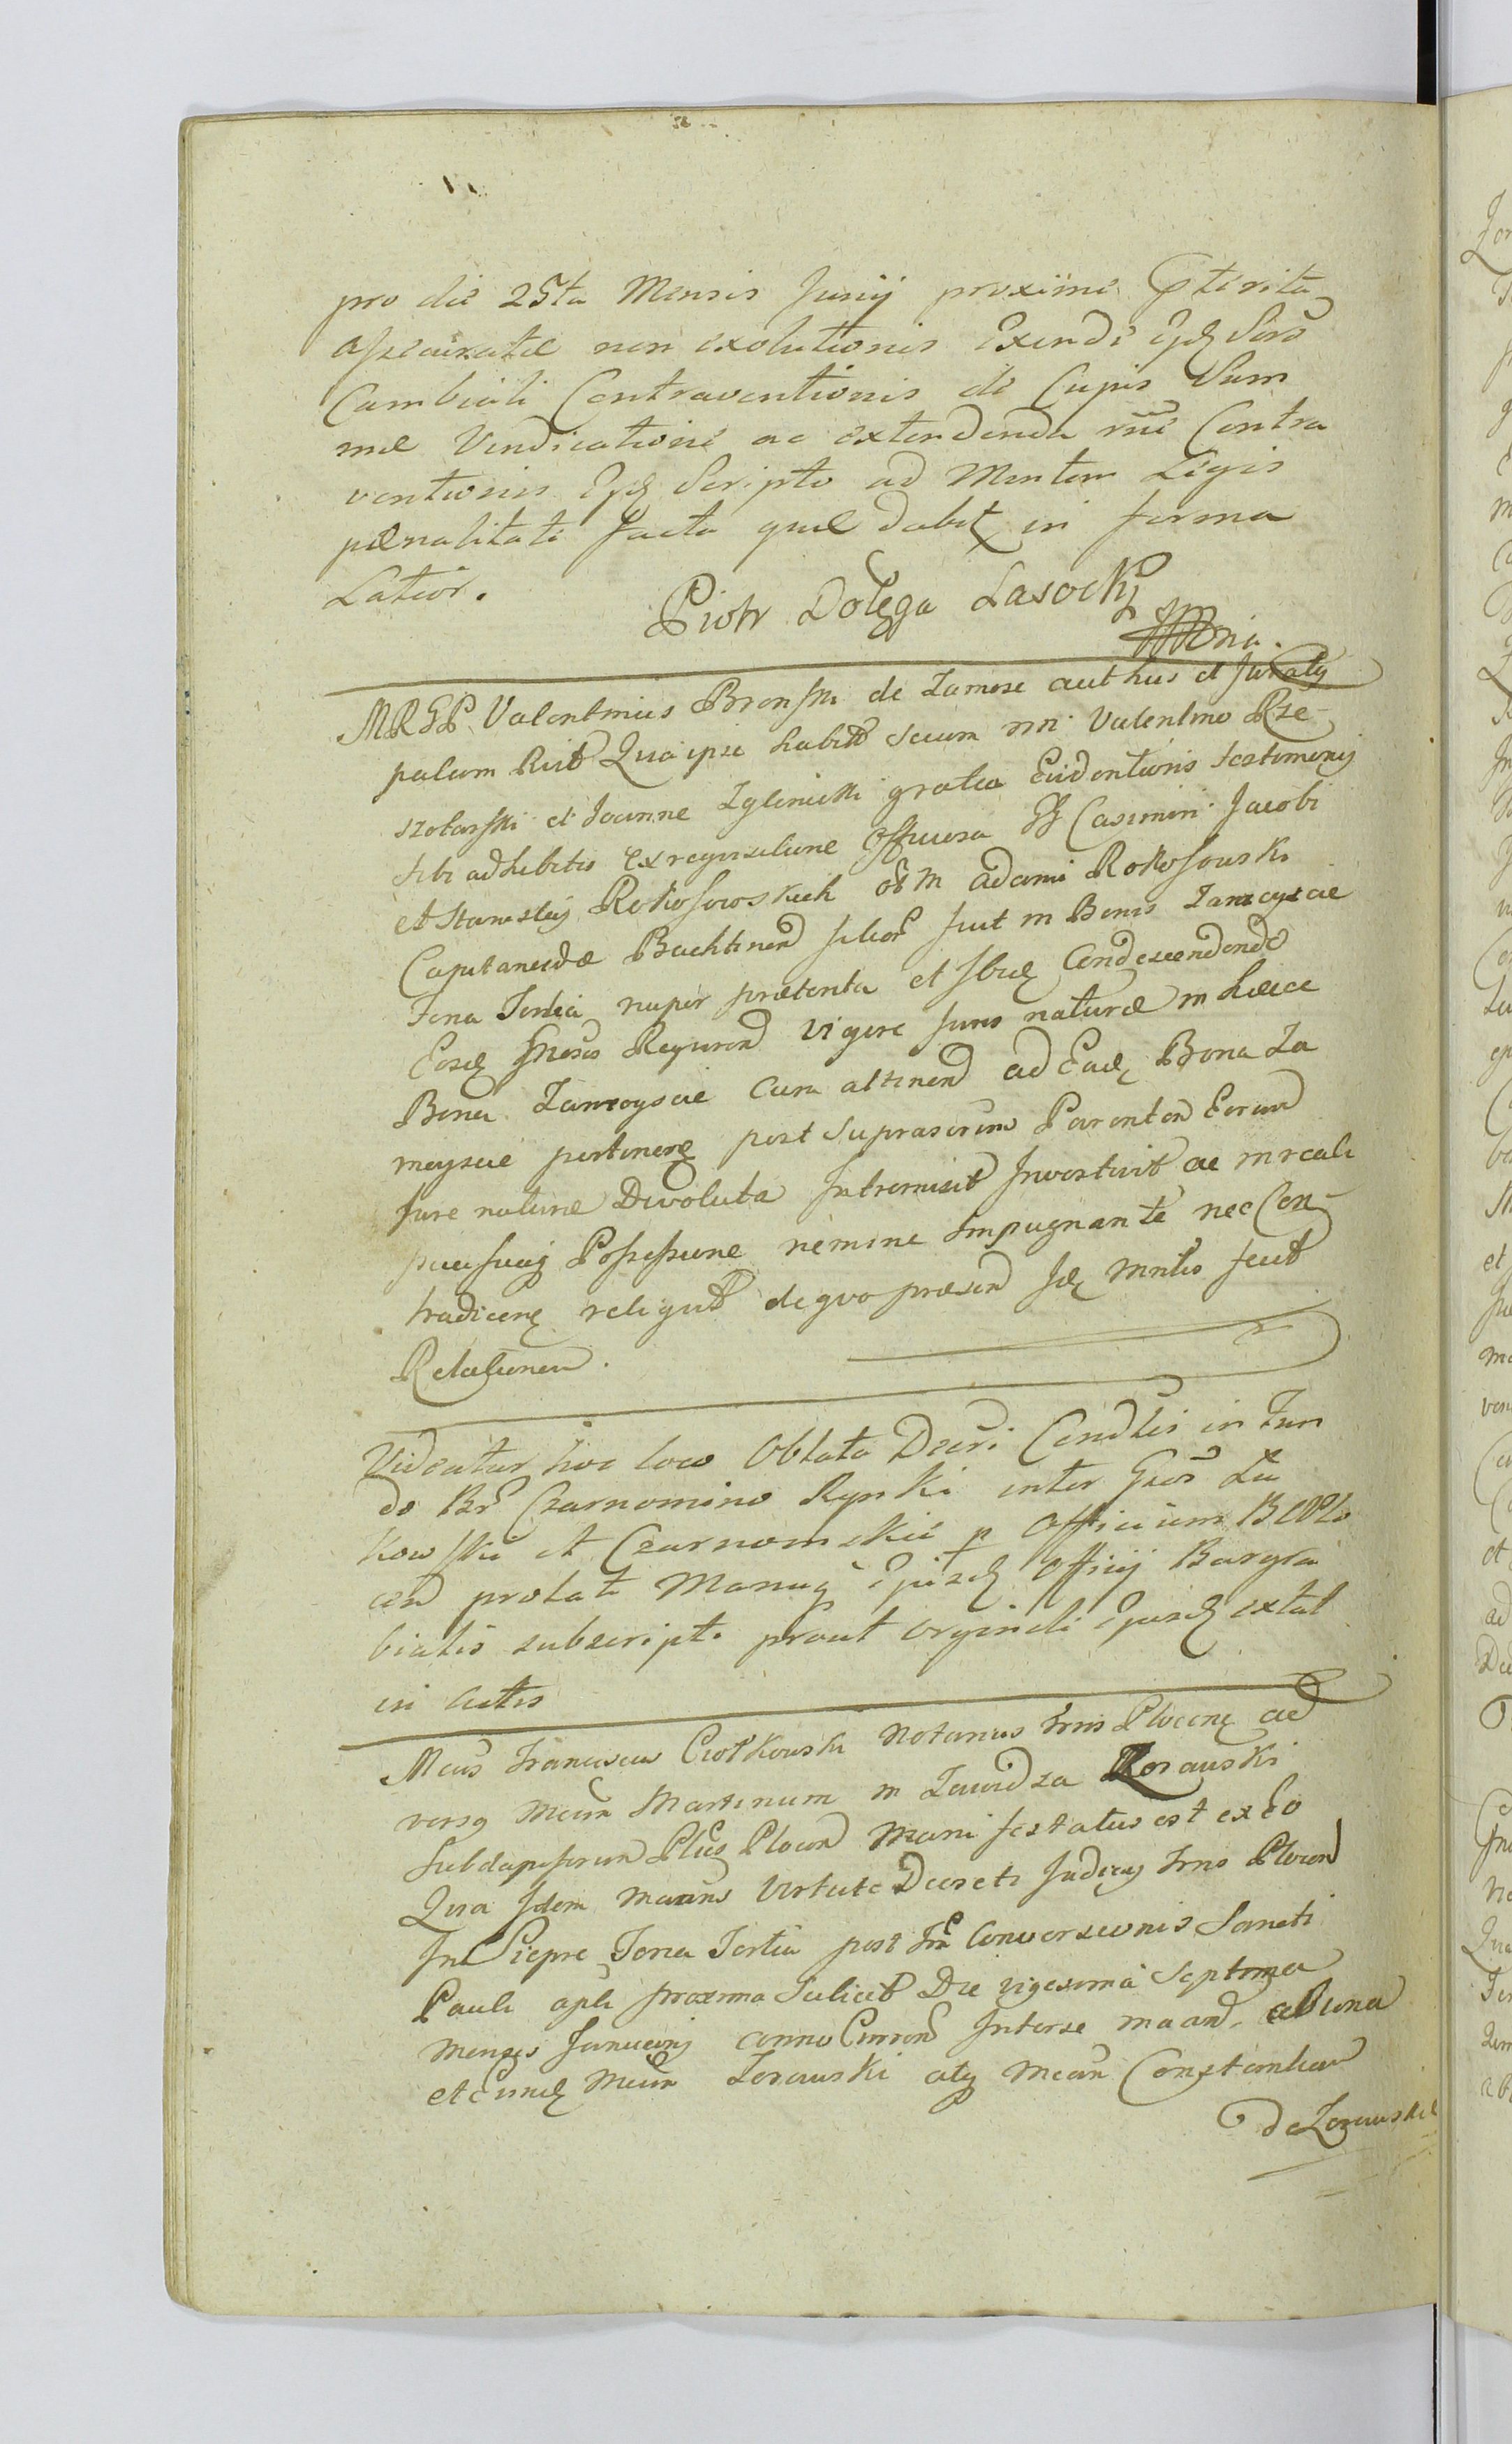 pro die 25ta Mensis Junij proxime Pterita
assecuratæ non exolutionis Exinde Ejdę Scro
Cambiali Contraventionis de Cujus Sum
mæ Vindicatione ac extendenda rñe Contra
ventionis Ejdę Scripto ad Mentem Legis
pænalitate facta quæ dabit in forma
Latior.
Piotr Dołęga Lasocki
mria.
MRGP Valentinus Bronski de Zamosc authus et Juraty
palam Rcit Quia ipse habitis secum nn Valentino Rze-
szotarski et Joanne Zglinicki gratia Evidentioris testimonij
sibi adhibitis ex requisitione Officiosa GG Casimiri Jacobi
et Stanislaj Rokosowskich ol M Adami Rokosowski
Capitaneidæ Bachtinen filior fuit in Bonis Zamoyscie
Feria Tertia nuper præterita et ibidę Condescendendo
Eosdę Gnosos Requiren vigore Juris naturæ in hæcce
Bona Zamoyscie cum attinen ad Eadę Bona Za
moyscie pertinenę post suprascrum Parentem Eorum
Jure naturæ Devoluta Intromisit Investivit ac in reali
Possessione nemine impugnante nec Con-
tradicenę reliquit de quo præsen Idę Mntlis fecit
Relationem.
Videatur hoc loco Oblata Decri Condlis in Fun
do Br Czarnomino Rynki inter Gsos La
kowski et Czarnomskie p Officium BCPlo
cen prolati Manuq Ejusdę Officij Burgra
bialis subscripti prout orginali Ejusdę extat
in Actis
Mcus Franciscus Ciołkowski Notarius Trris Plocenę ad
versq Mcum Martinum in Zawidza Zorawski
Subdapiferum Pltus Plocen Manifestatus est ex Eo
Quia Idem Mcus Virtute Decreti Judicij Trris Plocen
In Sieprc Feria Tertia post Fm Conversionis Sancti
Pauli apli proxima Scilicet Die vigesima Septima
Mensis Januarij anno Curren Interse ma ab una
et Eundę Mcum Zorawski atq Mcam Constantiam
de Zorawskie